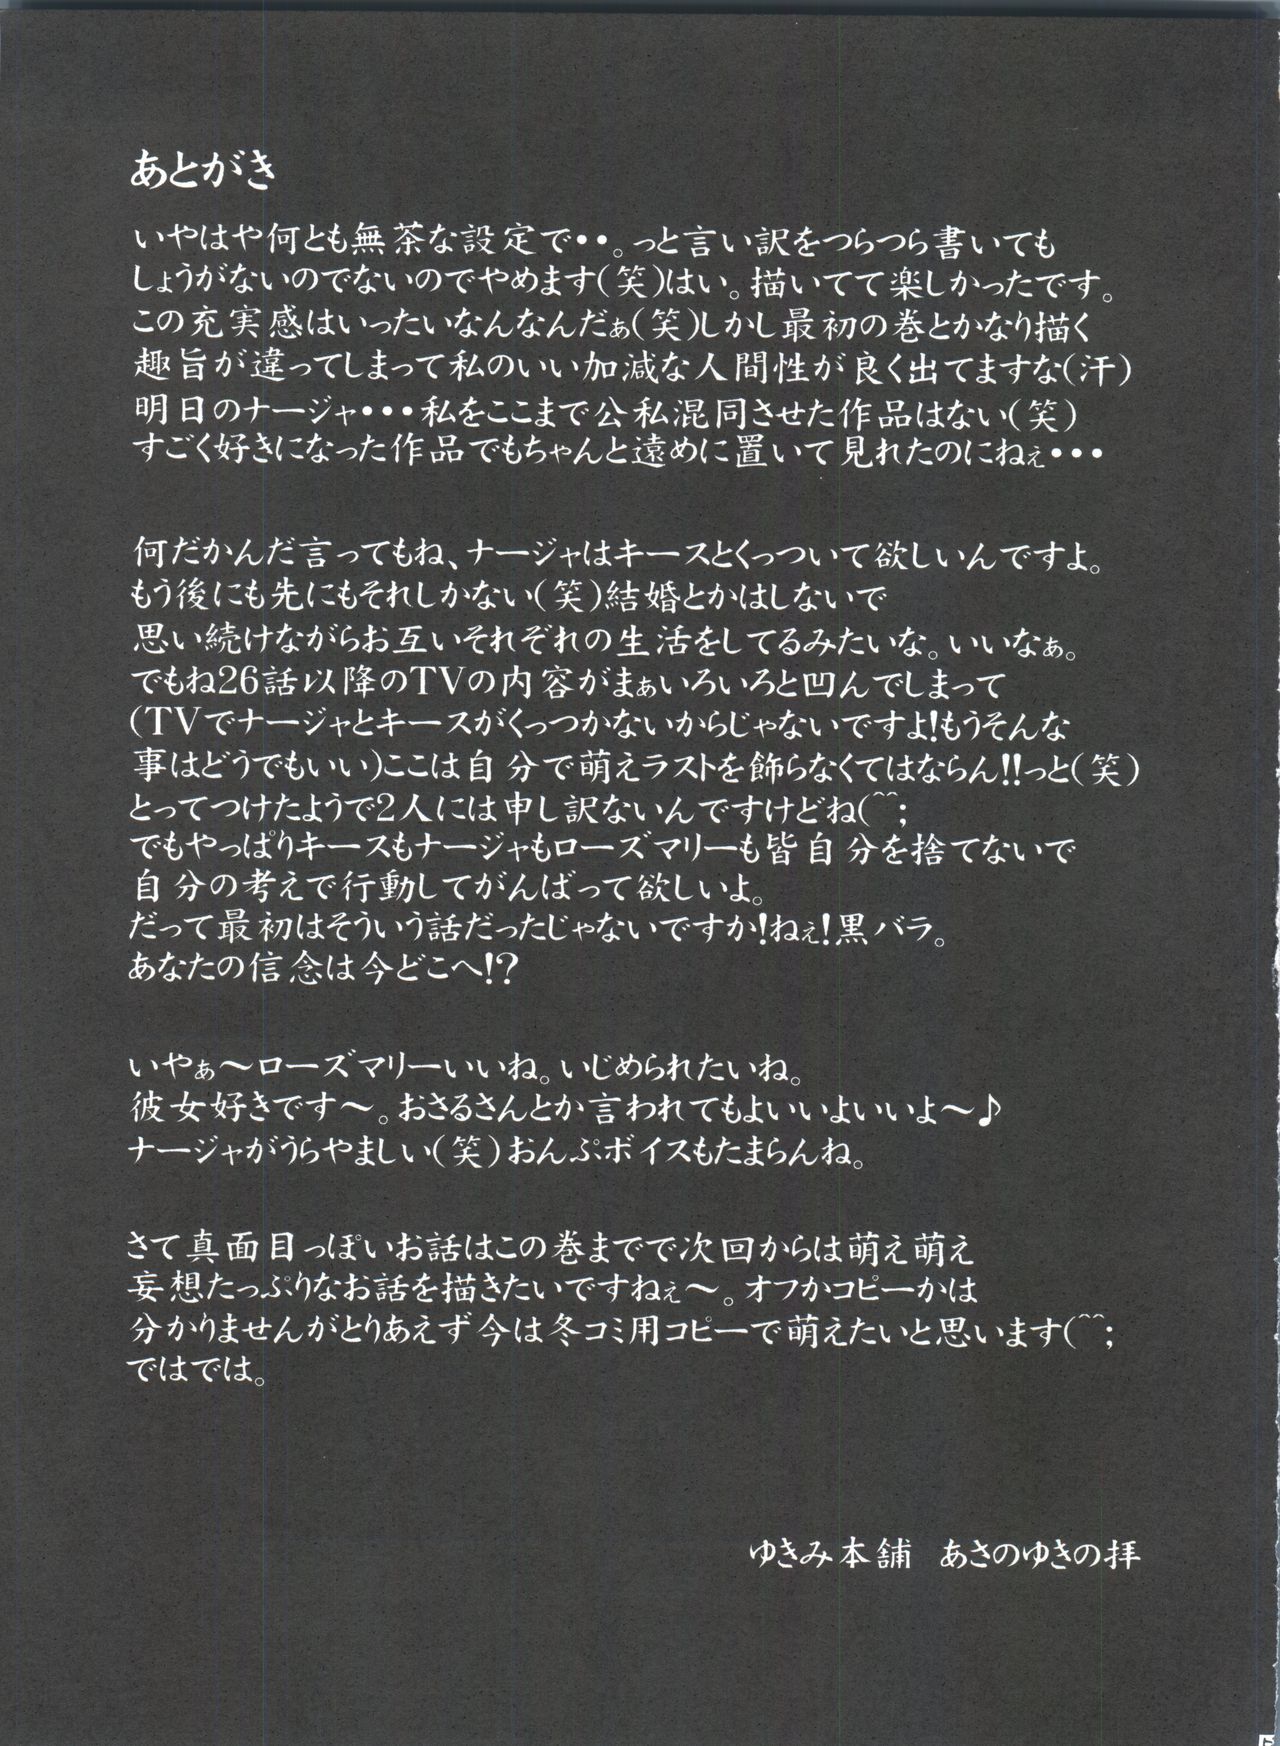 あとがき
いやはや何とも無茶な設定で・・。っと言い訳をつらつら書いても
しょうがないのでないのでやめます(笑)はい。描いてて楽しかったです。
この充実感はいったいなんなんだぁ(笑)しかし最初の巻とかなり描く
趣旨が違ってしまって私のいい加減な人間性が良く出てますな(汗)
明日のナージャ・・・私をここまで公私混同させた作品はない(笑)
すごく好きになった作品でもちゃんと遠めに置いて見れたのにねぇ・・・
何だかんだ言ってもね、ナージャはキースとくっついて欲しいんですよ。
もう後にも先にもそれしかない(笑)結婚とかはしないで
思い続けながらお互いそれぞれの生活をしてるみたいな。いいなぁ。
でもね26話以降のTVの内容がまぁいろいろと凹んでしまって
(TVでナージャとキースがくっつかないからじゃないですよ!もうそんな
事はどうでもいい)ここは自分で萌えラストを飾らなくてはならん!!っと(笑)
とってつけたようで2人には申し訳ないんですけどね(^^;
でもやっぱりキースもナージャもローズマリーも皆自分を捨てないで
自分の考えで行動してがんばって欲しいよ。
だって最初はそういう話だったじゃないですか!ねぇ!黒バラ。
あなたの信念は今どこへ!?
いやぁ～ローズマリーいいね。いじめられたいね。
彼女好きです～。おさるさんとか言われてもよいいよいいよ～♪
ナージャがうらやましい(笑)おんぷボイスもたまらんね。
さて真面目っぽいお話はこの巻までで次回からは萌え萌え
妄想たっぷりなお話を描きたいですねぇ～。オフかコピーかは
分かりませんがとりあえず今は冬コミ用コピーで萌えたいと思います(^^;
ではでは。
ゆきみ本舗　あさのゆきの拝